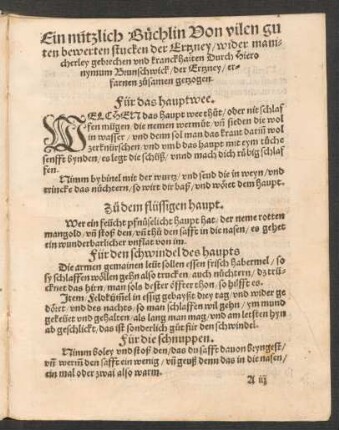 Ein nützlich Büchlin Von vilen gu
ten bewerten stucken der Ertzney/ wider mani
cherley gebrechen vnd kranckhaiten Durch Hiero
nymum Brunschwick/ der Ertzney/ er-
farnen zůsamen gezogen.
Für das hauptwee.
WELCHEN das haupt wee thůt/ oder nit schlaf
fen mügen die nemen wermůt/ vñ sieden die wol
in wasser/ vnd denn sol man das kraut dariñ wol
zerknürschen/ vnd vmb das haupt mit eym tůche
senfft bynden/ es legt die schöß/ vnnd mach dich růbig schlaf
fen.
Nimm bybinel mit der wurtz/ vnd send die in weyn/ vnd
trincke das nüchtern/ so wirt dir baß/ vnd wöret dem haupt.
Zů dem flüssigen haupt.
Wer ein feücht pfnüselicht haupt hat/ der neme rotten
mangold/ vñ stoß den/ vñ thů den safft in die nasen/ es gehet
ein wunderbarlicher vnflat von im.
Für den schwindel des haupts
Die armen gemainen leüt sollen essen frisch habermel/ so
sy schlaffen wöllen gehn also trucken. auch nüchtern/ dz trü-
cknet das hirn/ man sols dester öffter thon/ so hilfft es.
Item. Feldkümel in essig gebayßt drey tag/ vnd wider ge
dörret/ vnd des nachts/ so man schlaffen wil gehn/ ym mund
gekeüet vnd gehalten/ als lang man mag/ vnd am letsten hyn
ab geschlickt/ das ist sonderlich gůt für den schwindel.
Für die schnuppen.
Nimm boley vnd stoß den/ das du safft dauon bryngest/
vñ wermñ den safft ein wenig/ vñ geuß denn das in die nasen/
ein mal oder zwai also warm.
A iij